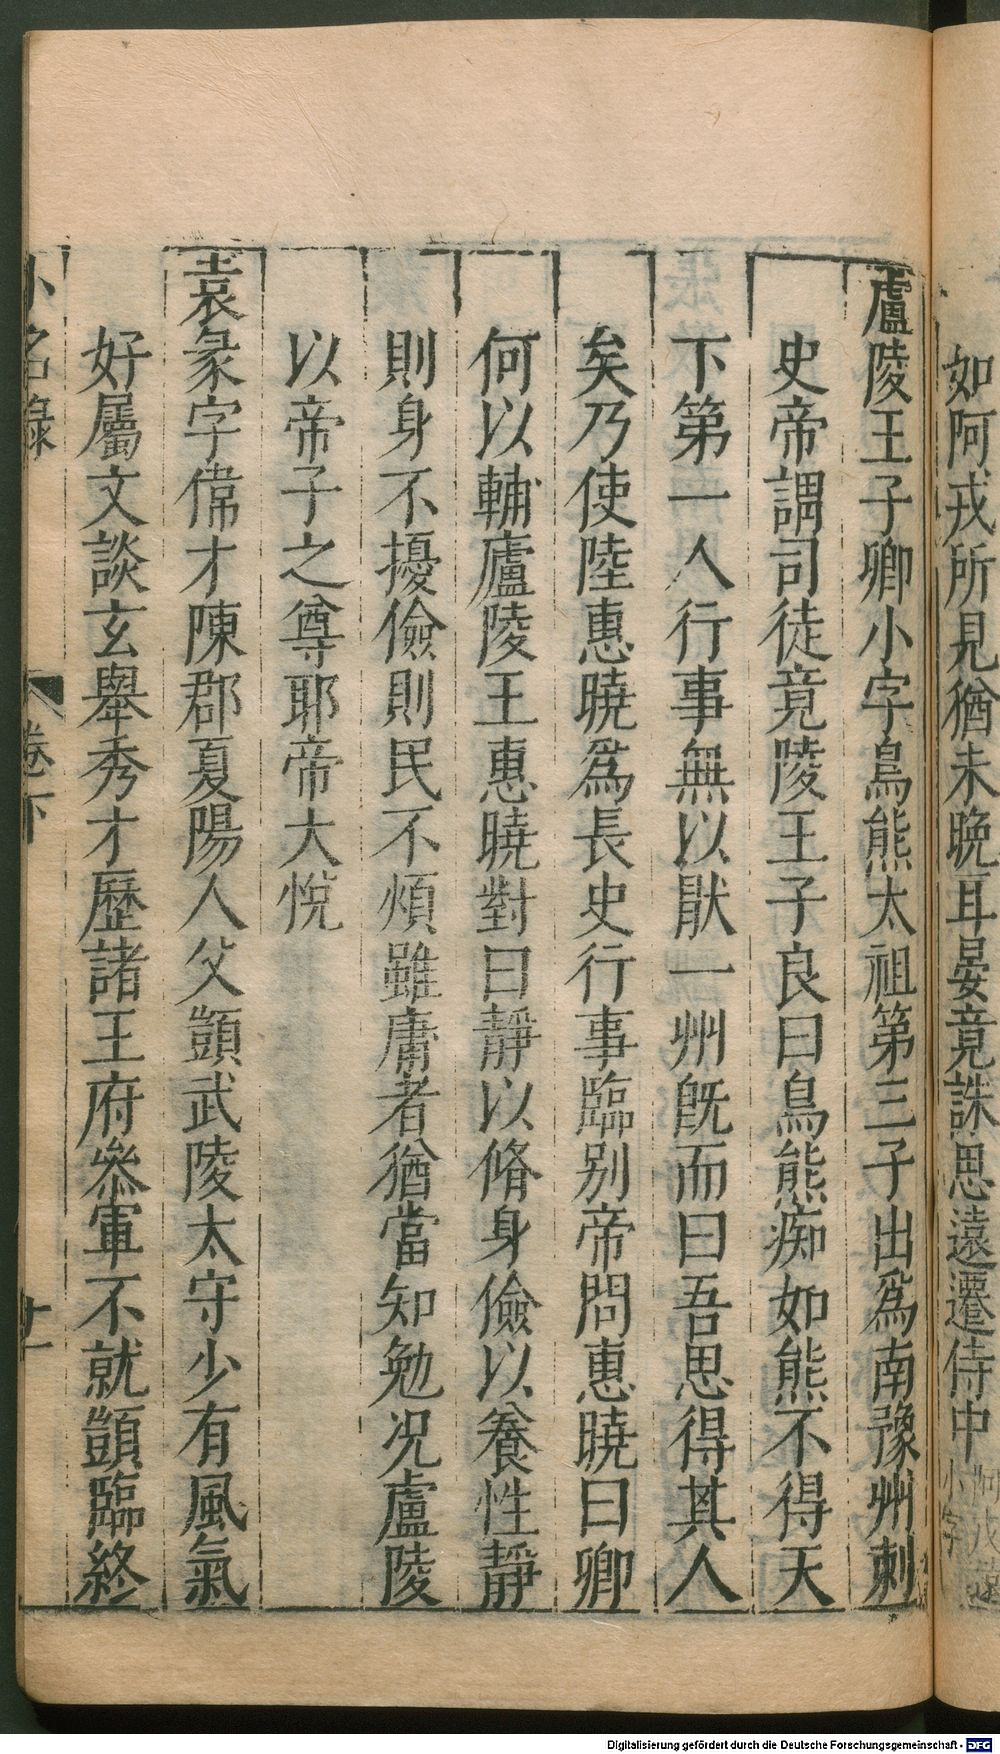 如阿戎所見猶未晚耳晏竟誅思遠遷侍中
小字
廬陵王子卿小字烏熊太祖第三子出爲南豫州刺
史帝謂司徒竟陵王子良曰烏熊痴如熊不得天
下第一人行事無以猒一州旣而曰吾思得其人
矣乃使陸惠曉爲長史行事臨别帝問惠曉曰卿
何以輔廬陵王惠曉對曰靜以脩身儉以養性靜
則身不擾儉則民不煩雖庸者猶當知勉况廬陵
以帝子之尊耶帝大悅
袁彖字偉才陳郡夏陽人父顗武陵太守少有風氣
好屬文談玄舉秀才歷諸王府叅軍不就顗臨終
小名錄
卷下
十一
Digitalisierung gefördert durch die Deutsche Forschungsgemeinschaft - DFG